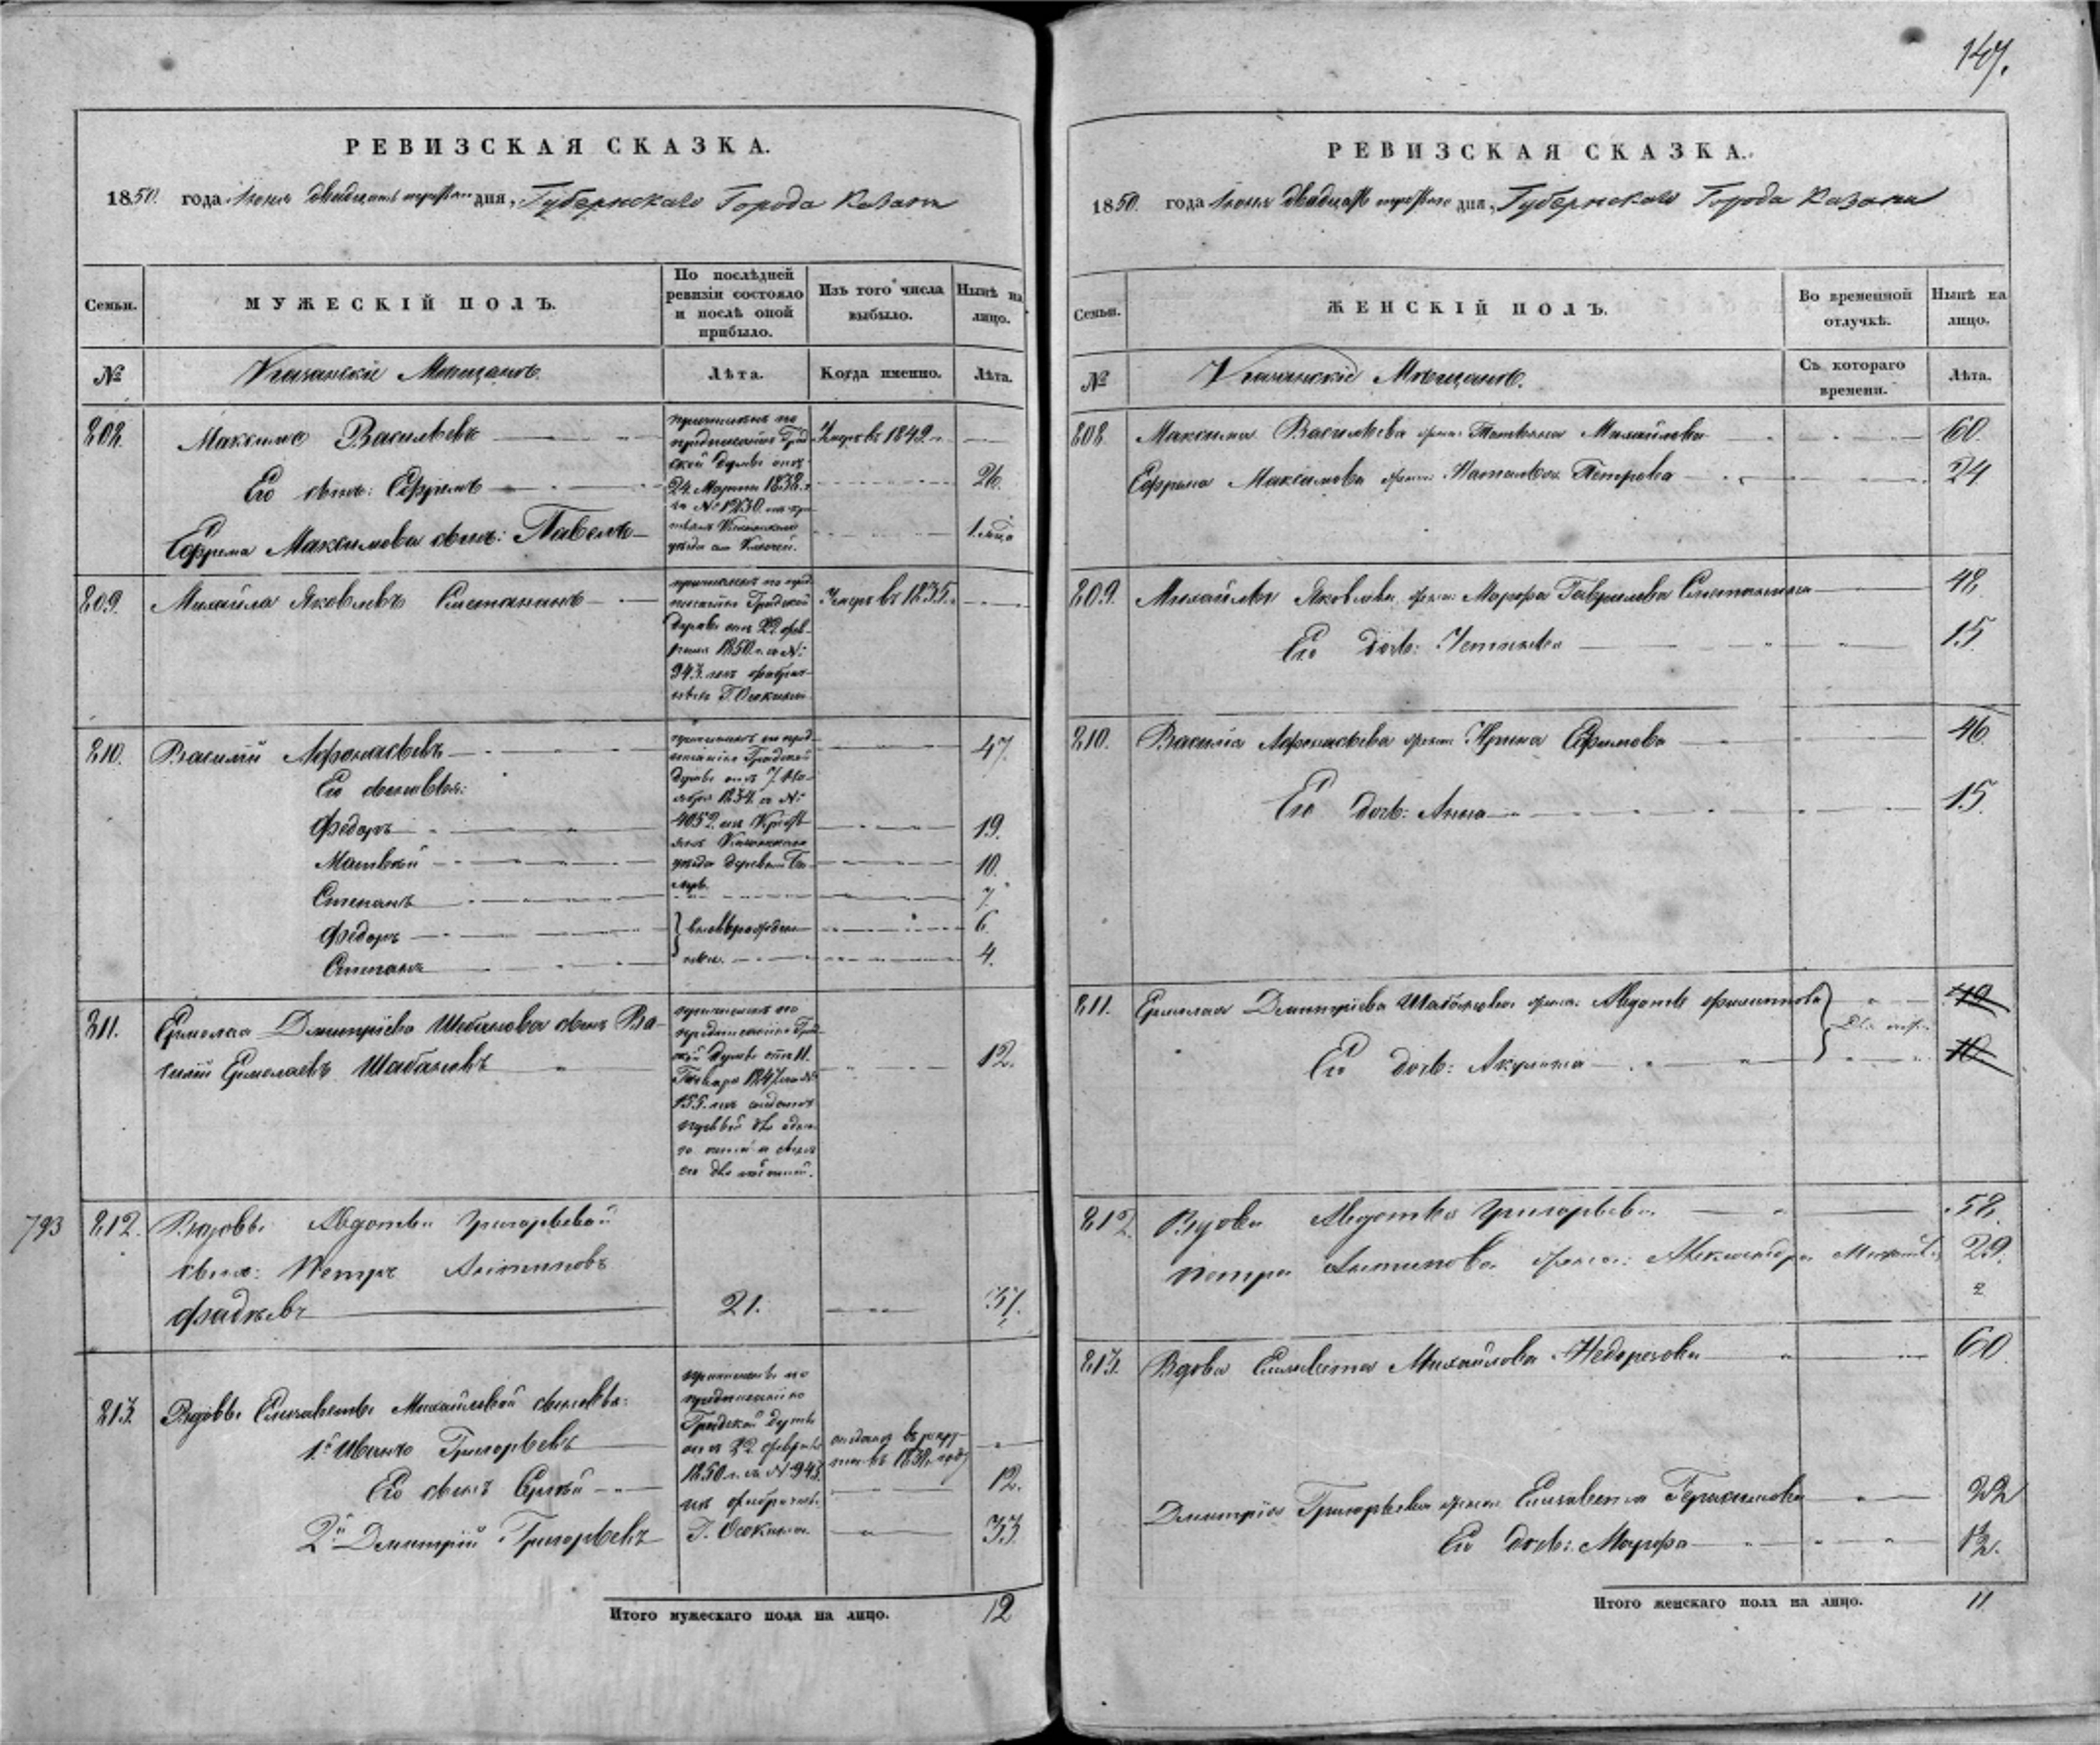 147.
РЕВИЗСКАЯ СКАЗКА.
1850. года Іюня двадцать дня, Губернскаго Города Казани
Семьи.
МУЖЕСКІЙ ПОЛЪ.
По послѣдней ревизіи состояло и послѣ оной прибыло.
Изъ того числа выбыло.
Нынѣ на лицо.
№
Казанскіе Мещане.
Лѣта.
Когда именно.
Лѣта.
808. Максимъ Васильевъ Умеръ въ 1842 г.
Его сынъ: Ефремъ 26.
Ефрема Максимова сынъ: Павелъ 1. годъ
причисленъ по
предписанію Град
ской Думы отъ
24. Марта 1838. г.
за № 1230. изъ кре
стьянъ Казанскаго
уѣзда
809. Михайла Яковлевъ Сметанинъ Умеръ въ 1835.
причисленъ по пред
писанію Градской
Думы отъ 22 фев
раля 1850. г. за №
943. изъ фабрич
ныхъ Г. Осокина
810. Василій Афонасьевъ 47.
Его сыновья:
Федоръ 19.
Матвей 10.
Степанъ 7.
Федоръ 6.
Степанъ 4.
причисленъ по пред
писанію Градской
Думы отъ 7. Но
ября 1834. за №
4052. изъ
Казанскаго
уѣзда деревни
811. Ермолая Дмитріева Шабанова сынъ Ва
силій Ермолаевъ Шабановъ 12.
причисленъ по
предписанію Град
ской Думы отъ 11.
Генваря 1847 за №
155. изъ
793
812. Вдовы Авдотьи Григорьевой
сынъ: Петръ Антиповъ
Фадѣевъ 21. 37.
813. Вдовы Елизаветы Михайловой сыновья:
1й Иванъ Григорьевъ отданъ въ рекру
ты въ 1838. году
Его сынъ Сергѣй 12.
2й Дмитрій Григорьевъ 33.
причислены по
предписанію
Градской Думы
отъ 22. февраля
1850 г. за № 943.
изъ фабричн.
Г. Осокина.
Итого мужескаго пола на лицо. 12
РЕВИЗСКАЯ СКАЗКА.
1850. года Іюня двадцать дня, Губернскаго Города Казани
Семьи.
ЖЕНСКІЙ ПОЛЪ.
Во временной отлучкѣ.
Нынѣ на лицо.
№
Казанскіе Мещане.
Съ котораго времени.
Лѣта.
808. Максима Васильева жена Татьяна Михайлова 60.
Ефрема Максимова жена Наталья Петрова 24
809. Михайлы Яковлева жена Марфа Гаврилова Сметанина 48,
Его дочь: Устинья 15.
810. Василія Афонасьева жена Ирина Ефимова 46.
Его дочь: Анна 15.
811. Ермолая Дмитріева Шабанова жена Авдотья Филиппова
Его дочь: Акулина 10.
812. Вдова Авдотья Григорьева 58.
Петра Антипова жена: Александра Михайл. 29.
2
813. Вдова Елизавета Михайлова Недорезова 60
Дмитрія Григорьева жена Елизавета Герасимова 22
Его дочь: Марфа 12.
Итого женскаго пола на лицо. 11